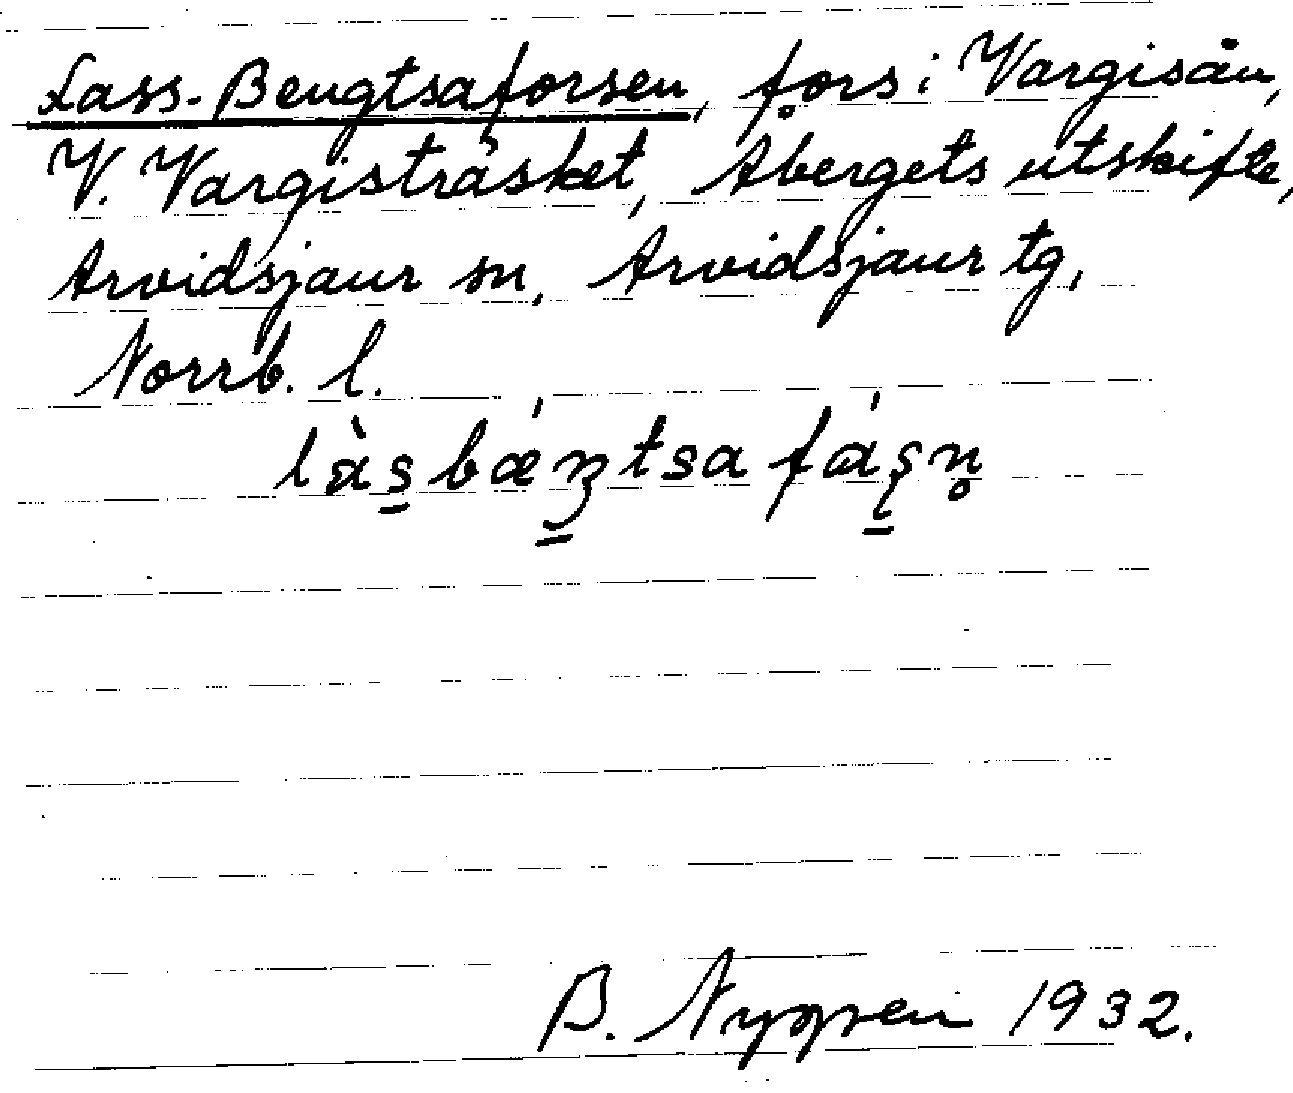 Lass-Bengtsaforsen, fors i Vargisån,
V. Vargisträsket, Åbergets utskifte,
Arvidsjaur sn, Arvidsjaur tg,
Norrb. l.
B. 1932.